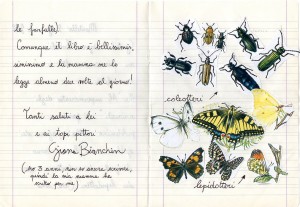 le farfalle).
Comunque il libro è bellissimo,
simissimo e la mamma me lo
legge almeno due volte al giorno!
Tanti saluti a lei
e ai topi pittori
Bianchin
(ho 3 anni, non so ancora scrivere,
quindi la mia mamma ha
scritto per me)
coleotteri
lepidotteri